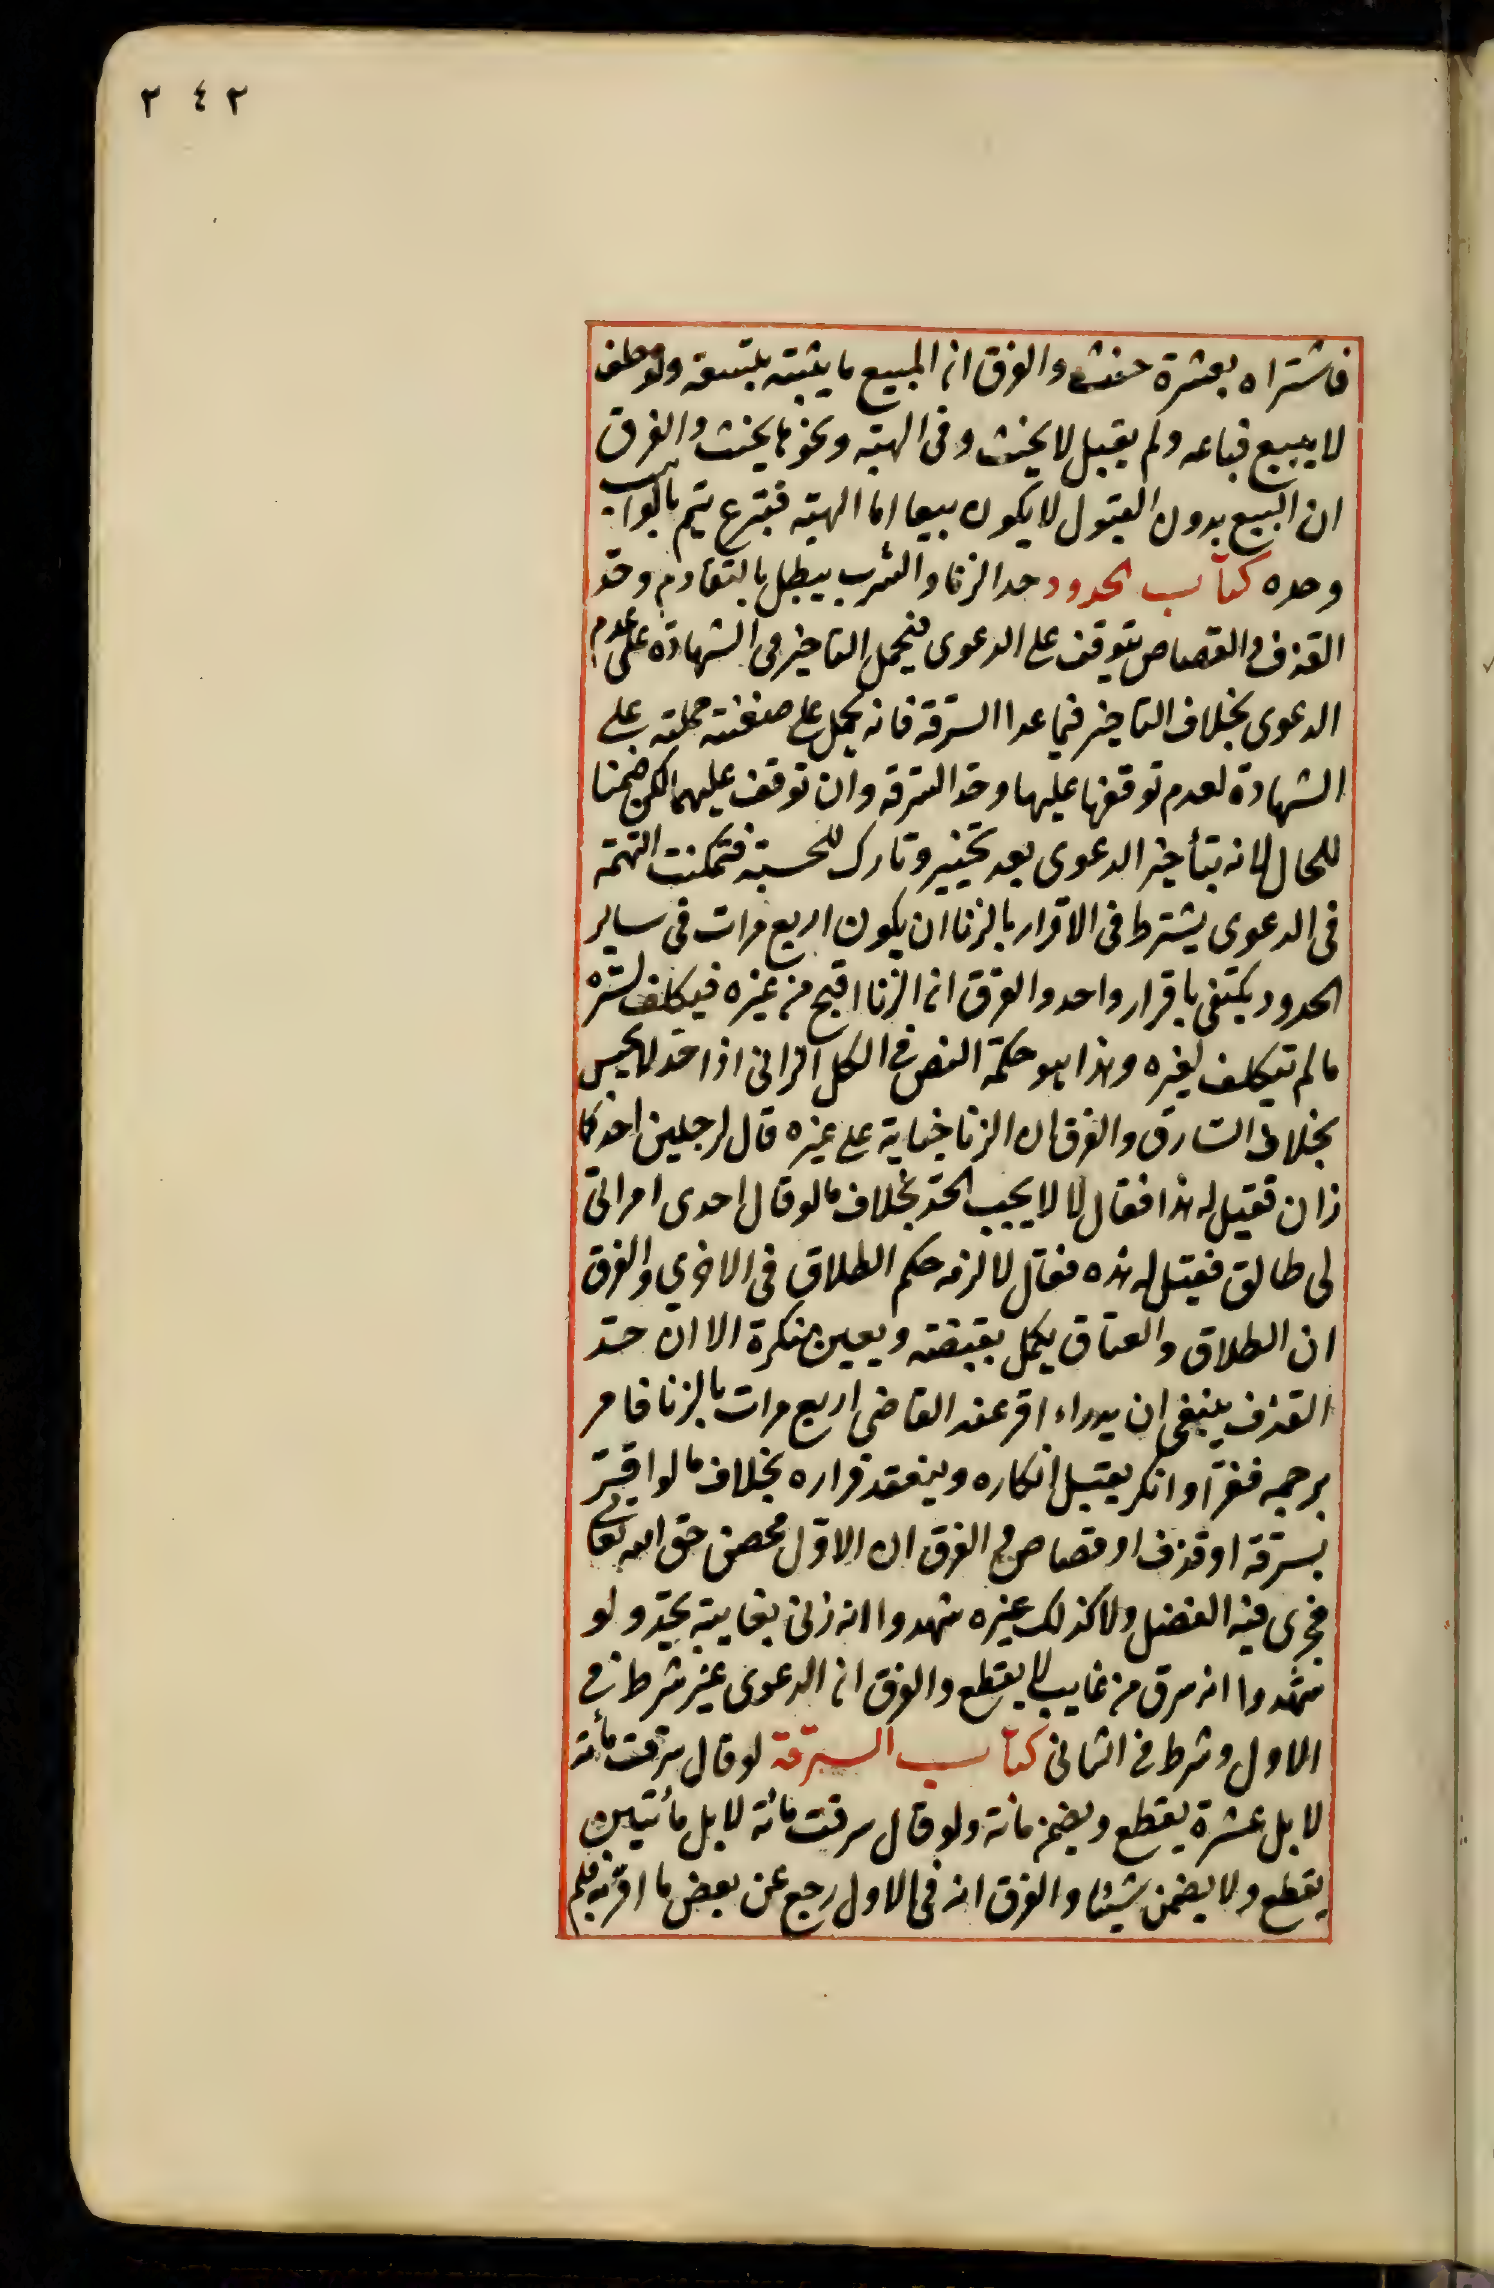 ٢٤٢
فاشتراه بعشرة حنث والفرق ان المبيع ما يثبته بتسعة ولو حلف
لا يبيع فباعه ولم يقبل لا يحنث وفى الهبة ونحوها يحنث والفرق
ان البيع بدون القبول لا يكون بيعا اما الهبة فتبرع يتم بالواهب
وحده كتاب الحدود حد الزنا والشرب يبطل بالتقادم وحد
القذف والقصاص يتوقف على الدعوى فيحمل التاخير فى الشهادة على عدم
الدعوى بخلاف التاخير فيما عدا السرقة فانه يحمل على ضغينة حملته على
الشهادة لعدم توقفها عليها وحد السرقة وان توقف عليها لكن ضمنا
للحال لانه بتأخير الدعوى بعد تخيير وتارك للحسبة فتمكنت التهمة
فى الدعوى يشترط فى الاقرار بالزنا ان يكون اربع مرات فى ساير
الحدود يكتفى باقرار واحد والفرق ان الزنا اقبح من غيره فيكلف لستره
ما لم يتكلف لغيره وهذا هو حكمة النص فى الكل الزانى اذا حد لا يحبس
بخلاف السارق والفرق ان الزنا جناية على غيره قال لرجلين احدكما
زان فقيل له هذا فقال لا لا يجب الحد بخلاف ما لو قال احدى امراتى
لى طالق فقيل له هذه فقال لا لزمه حكم الطلاق فى الاخرى والفرق
ان الطلاق والعتاق يكمل بعينه ويعين منكرة الا ان حد
القذف ينبغى ان يدراء اقر عند القاضى اربع مرات بالزنا فامر
برجمه ففر او انكر يقبل انكاره وينعقد قراره بخلاف ما لو اقر
بسرقة او قذف او قصاص والفرق ان الاول محض حق الله تعالى
فجرى فيه الفضل ولا كذلك غيره شهدوا انه زنى بغايبة يحد ولو
شهدوا انه سرق من غايب لا يقطع والفرق ان الدعوى غير شرط فى
الاول وشرط فى الثانى كتاب السرقة لو قال سرقت مائة
لا بل عشرة يقطع ويضمن مائة ولو قال سرقت مائة لا بل مأتين
يقطع ولا يضمن شيئا والفرق انه فى الاول رجع عن بعض ما اقر به فلم